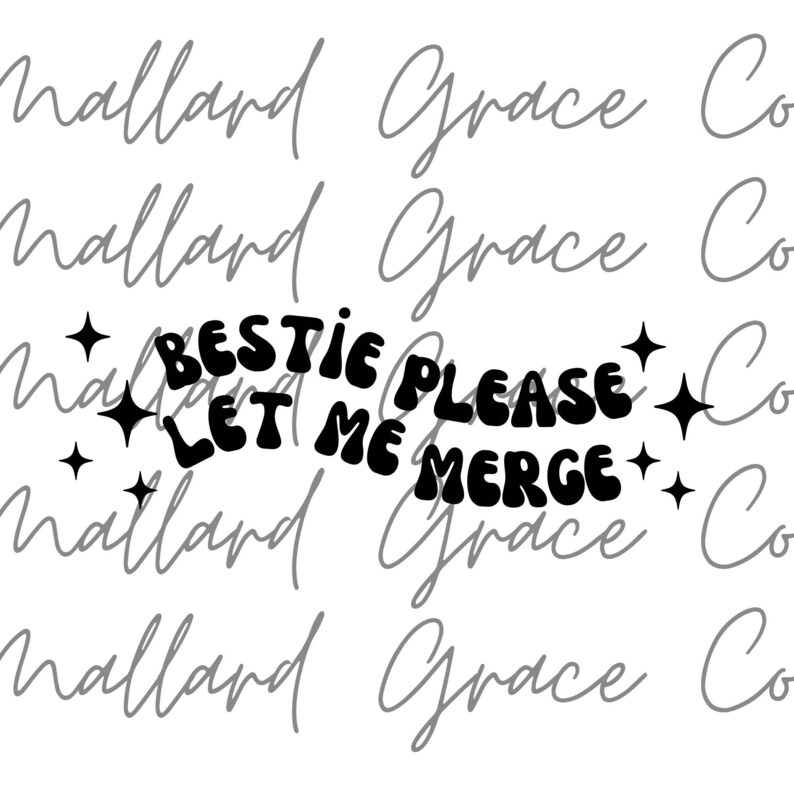 Mallard Grace Co
Mallard Grace Co
BESTiE PLEASE
LET ME MERGE
Mallard Grace Co
Mallard Grace Co
Mallard Grace Co